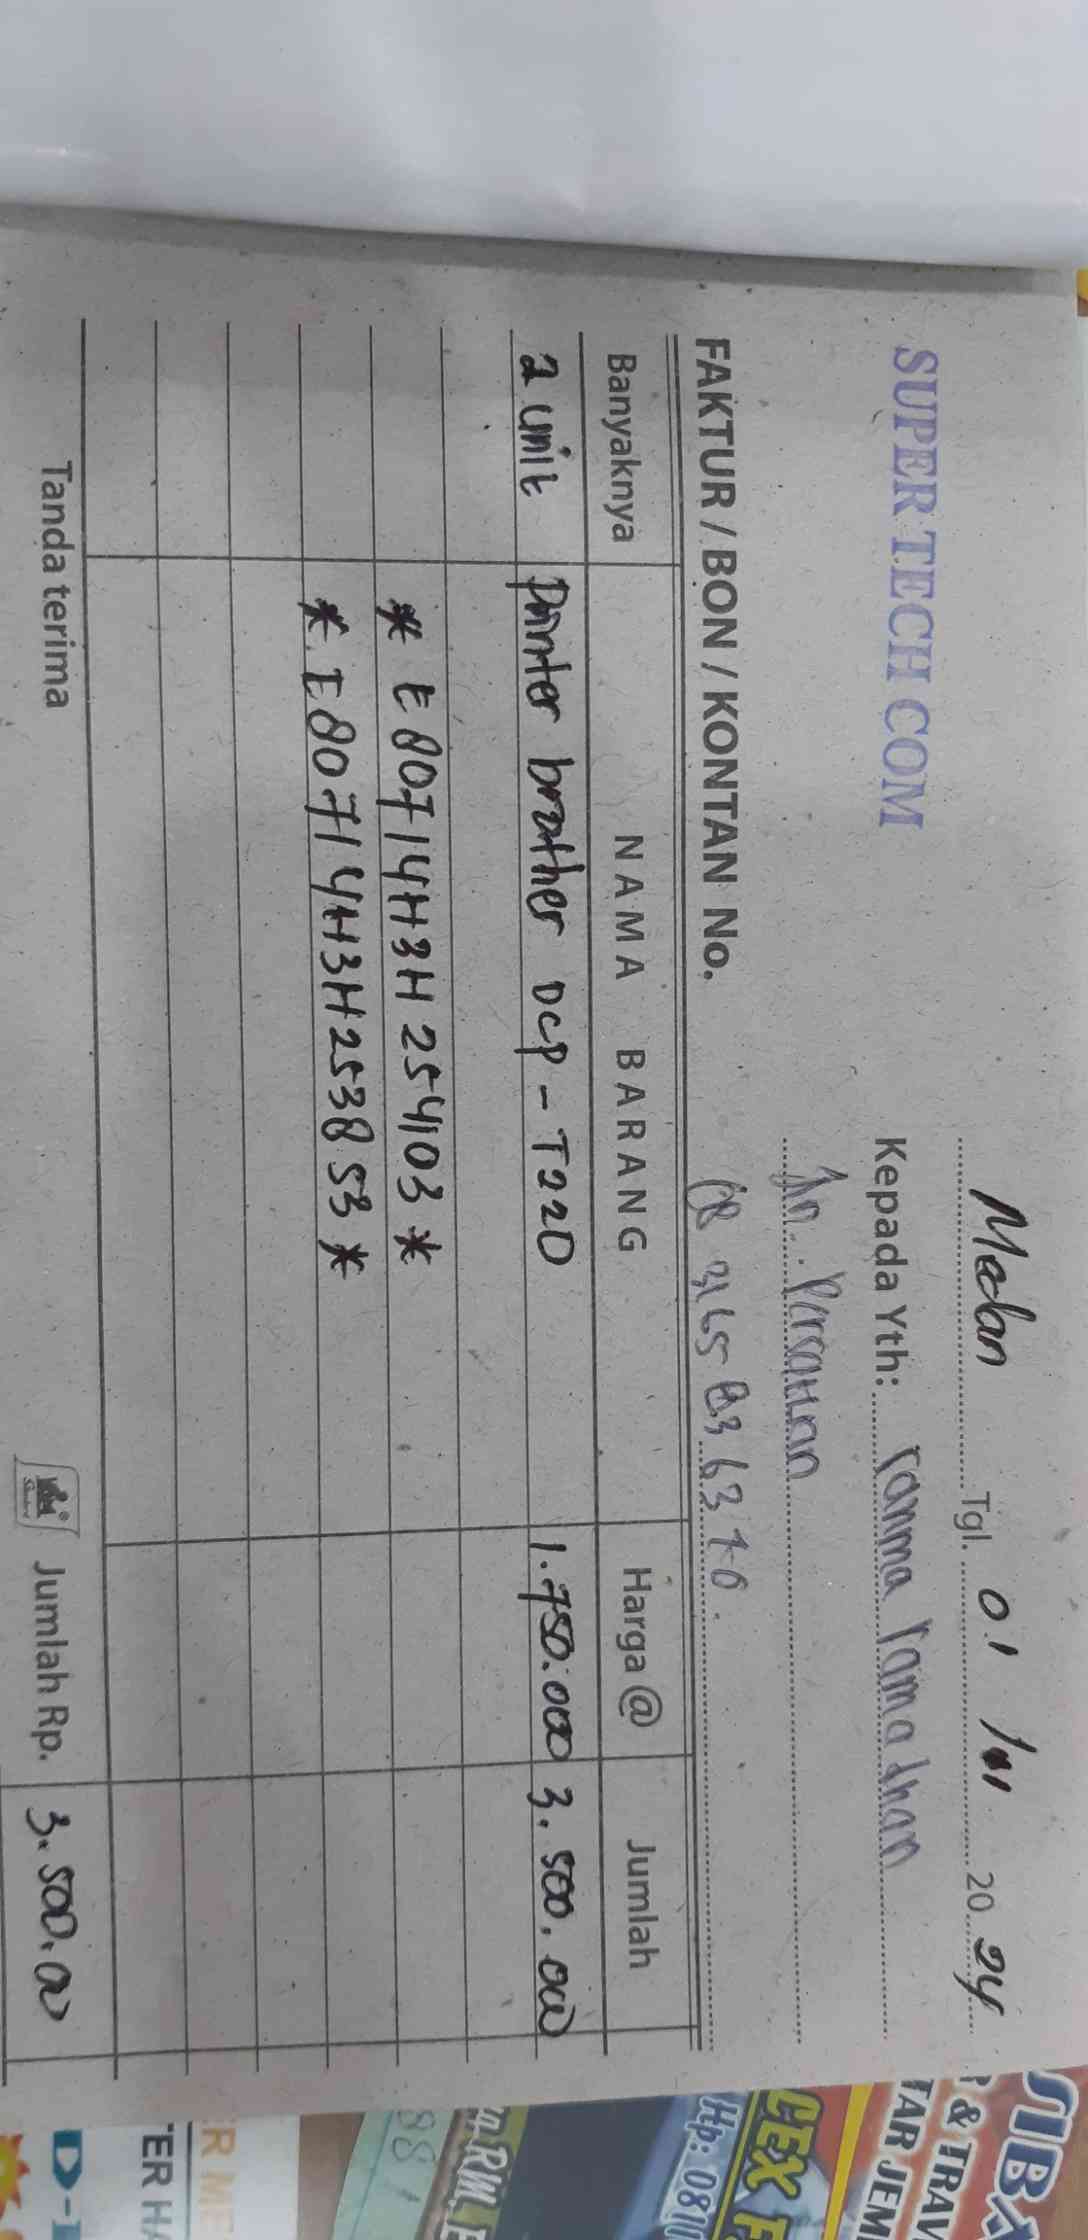 SUPER TECH COM
Medan Tgl. 01 / 2024
Kepada Yth: ramadhan
FAKTUR / BON / KONTAN No.
Banyaknya NAMA BARANG Harga @ Jumlah
2 unit Printer brother DCP-T220 1.750.000 3.500.000
* E80714H3H254103 *
* E80714H3H253853 *
Tanda terima Jumlah Rp. 3.500.00
SIBA
& TRAV
TAR JEM
CEX F
Hp: 081
an RM.
881
ER ME
TER HA
D-1